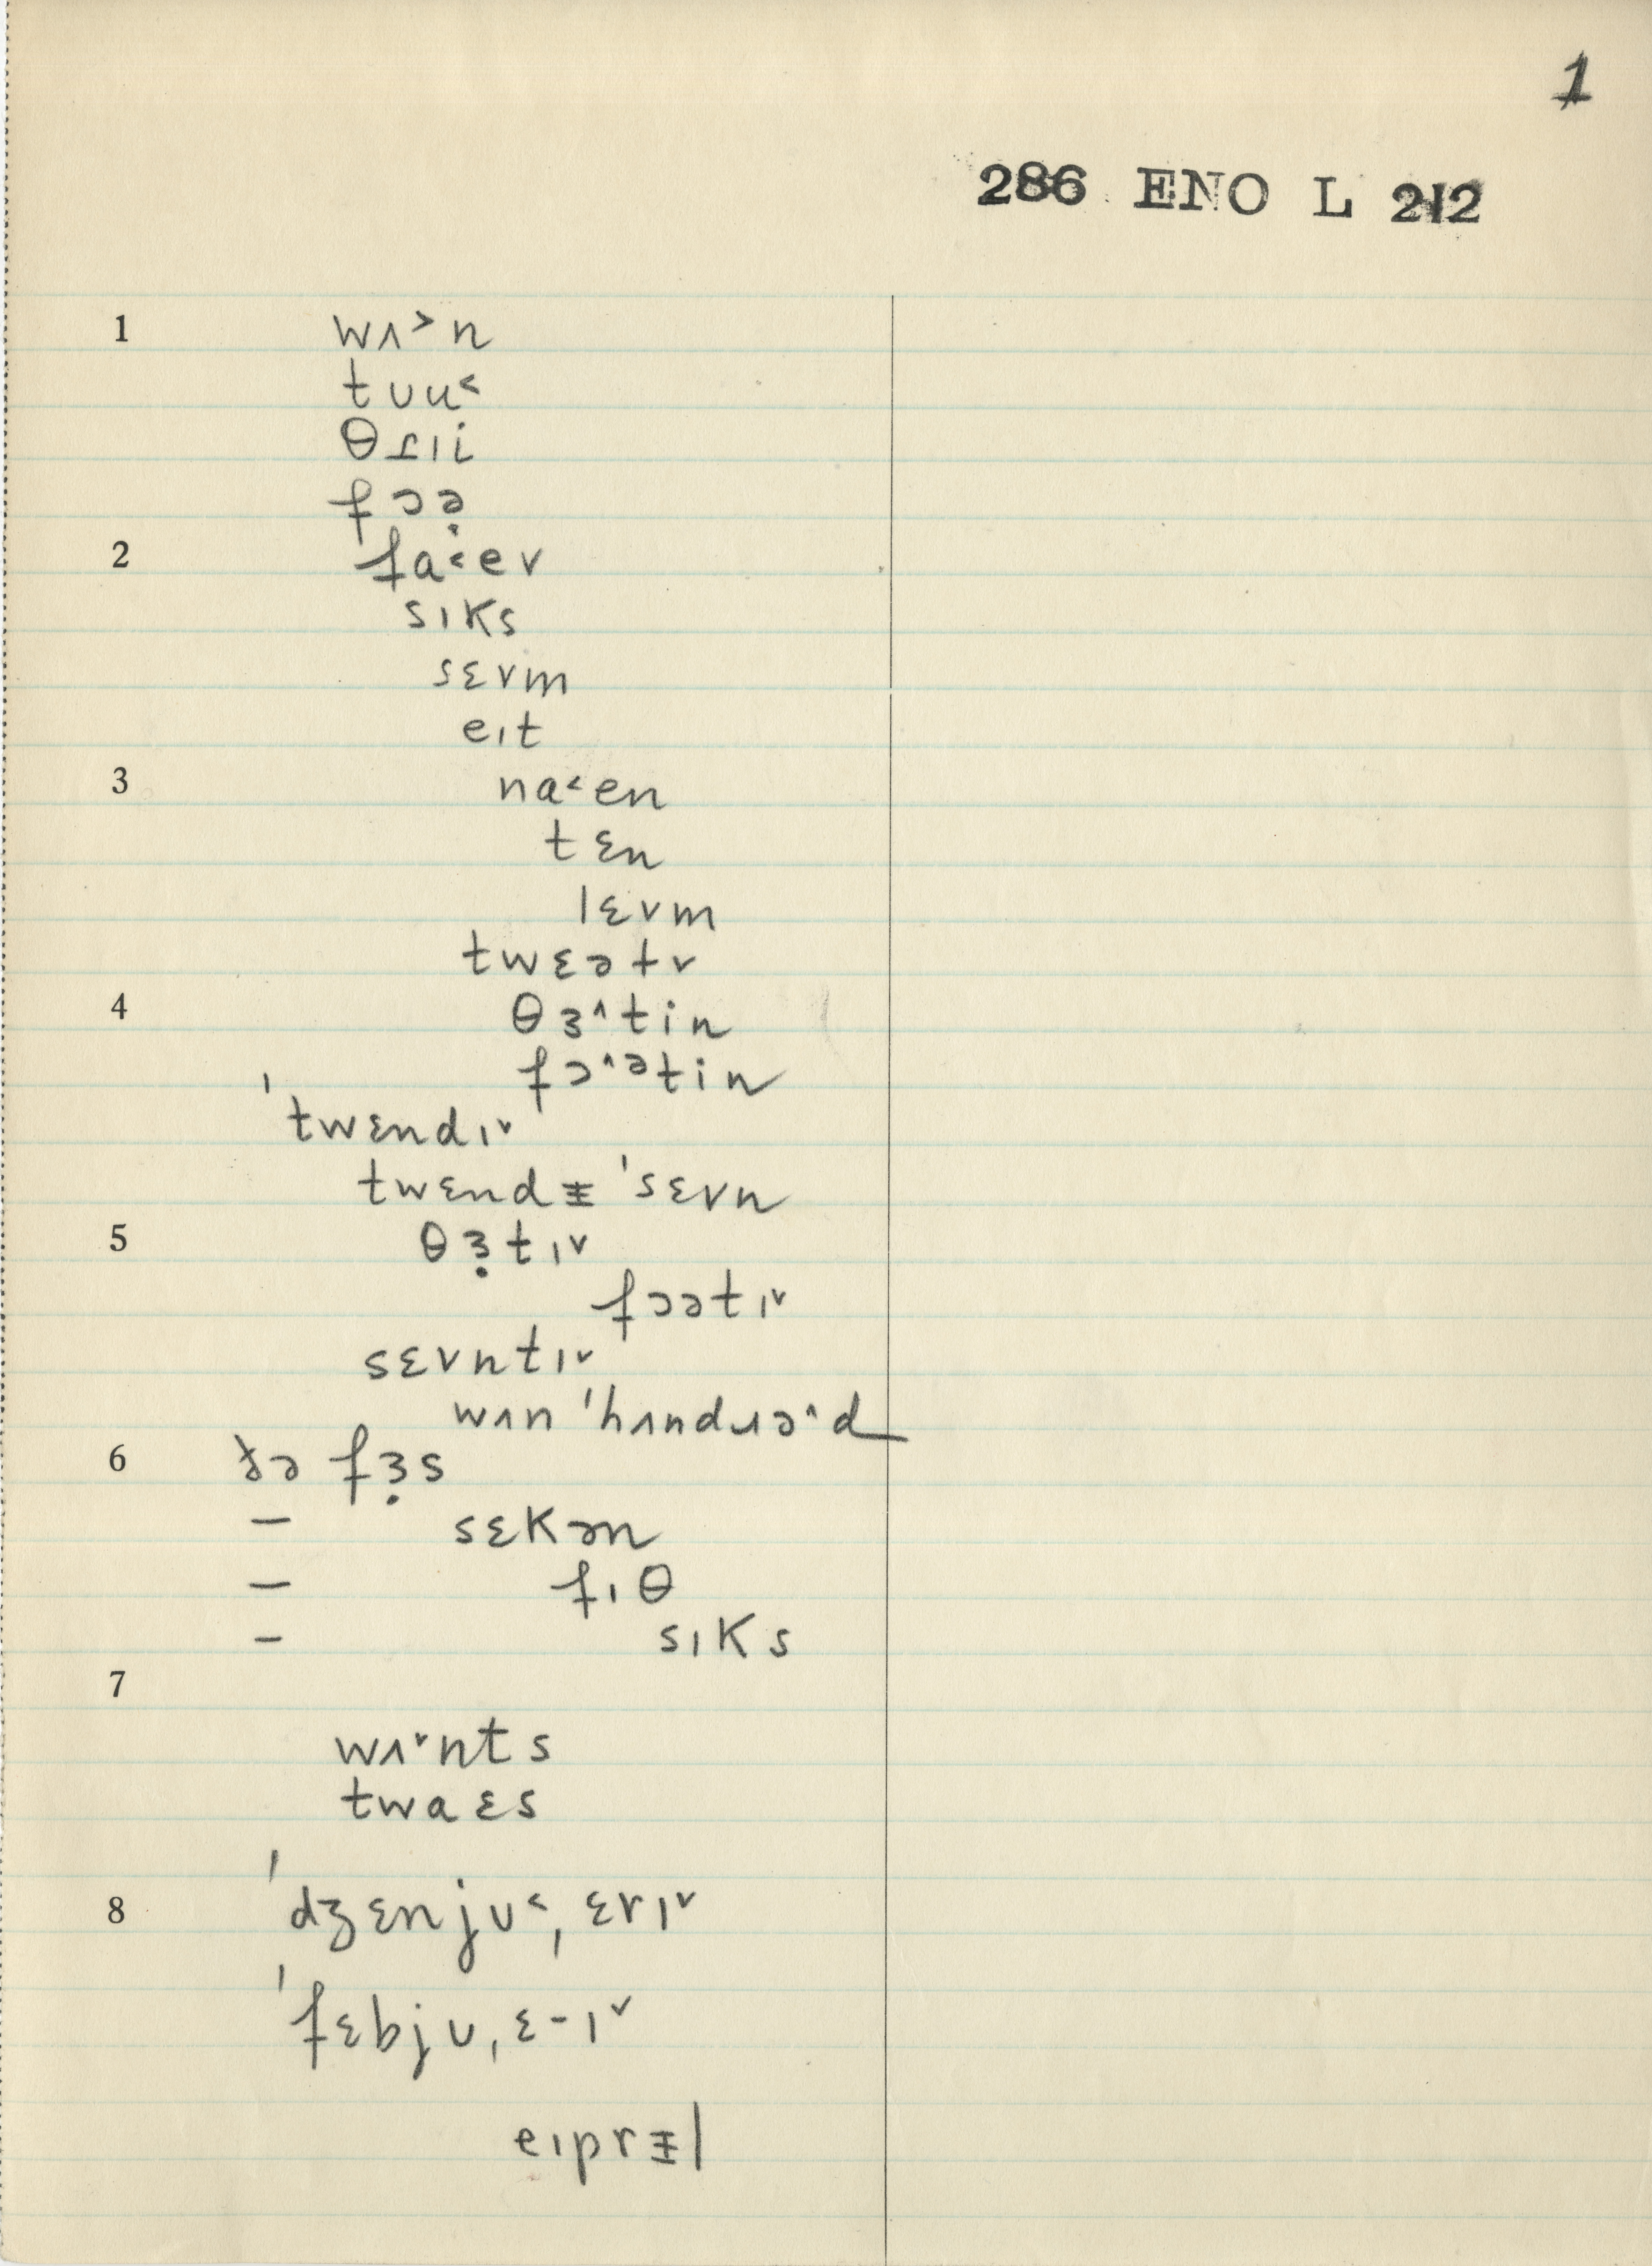 1
286 ENO L 212
1 wʌ˃n
tᴜu˂
θɹɪi
fɔə̣
2 fa˂ev
sɪks
sɛvm
eɪt
3 na˂en
tɛn
lɛvm
twɛətv
4 θɜ˄tin
fɔ˄ətin
ˈtwɛndɪ˅
twɛndᵻ ˈsɛvn
5 θɜ̣tɪ˅
fɔətɪ˅
sɛvntɪ˅
wʌn ˈhʌndɹə˄d
6 ðə fɜ̣s
— sɛkən
— fɪθ
— sɪks
7
wʌ˅nts
twaɛs
8 ˈdʒɛnjᴜ˂ˌɛrɪ˅
ˈfɛbjᴜˌɛ-ɪ˅
eɪprᵻl